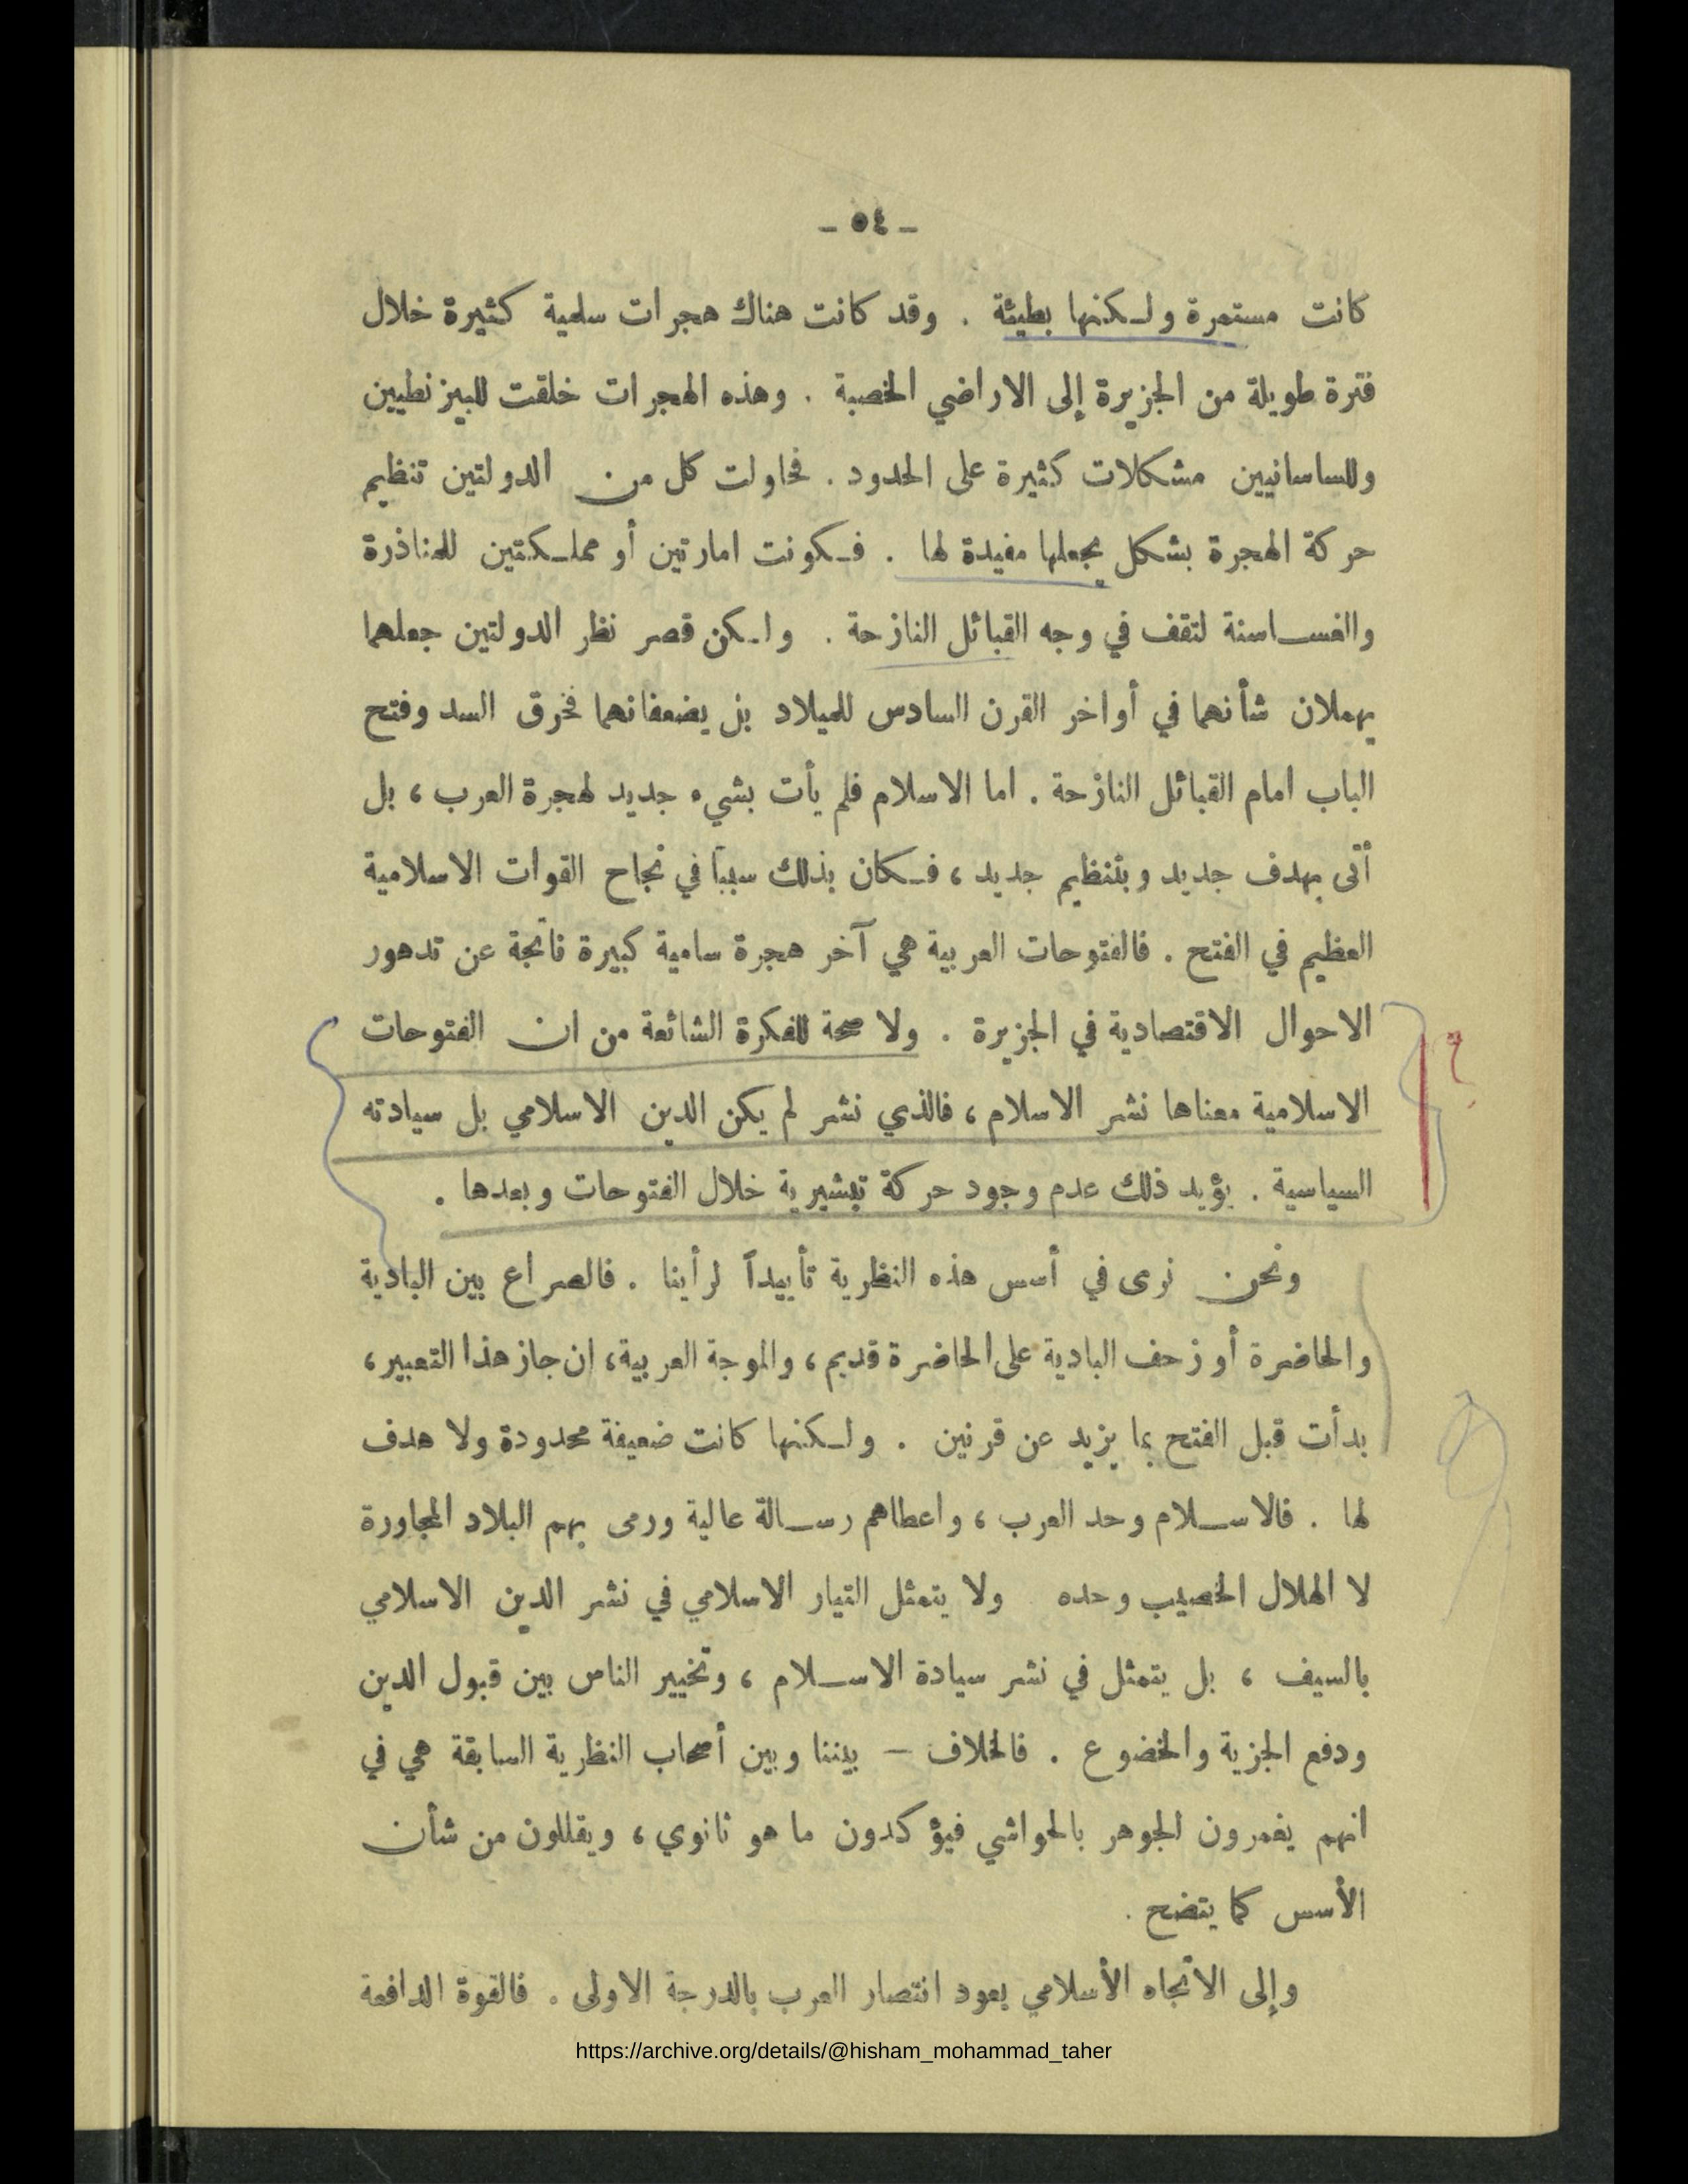 - ٥٤ -
كانت مستمرة ولكنها بطيئة . وقد كانت هناك هجرات سلمية كثيرة خلال
فترة طويلة من الجزيرة إلى الاراضي الخصبة . وهذه الهجرات خلقت للبيزنطيين
وللساسانيين مشكلات كثيرة على الحدود . فحاولت كل من الدولتين تنظيم
حركة الهجرة بشكل يجعلها مفيدة لها . فكونت امارتين أو مملكتين للمناذرة
والغساسنة لتقف في وجه القبائل النازحة . ولكن قصر نظر الدولتين جعلهما
يهملان شأنهما في أواخر القرن السادس للميلاد بل يضعفانهما فخرق السد وفتح
الباب امام القبائل النازحة . اما الاسلام فلم يأت بشيء جديد لهجرة العرب ، بل
أتى بهدف جديد وبتنظيم جديد ، فكان بذلك سبباً في نجاح القوات الاسلامية
العظيم في الفتح . فالفتوحات العربية هي آخر هجرة سامية كبيرة ناتجة عن تدهور
الاحوال الاقتصادية في الجزيرة . ولا صحة للفكرة الشائعة من ان الفتوحات
الاسلامية معناها نشر الاسلام ، فالذي نشر لم يكن الدين الاسلامي بل سيادته
السياسية . يؤيد ذلك عدم وجود حركة تبشيرية خلال الفتوحات وبعدها .
ونحن نرى في أسس هذه النظرية تأييداً لرأينا . فالصراع بين البادية
والحاضرة أو زحف البادية على الحاضرة قديم ، والموجة العربية ، ان جاز هذا التعبير ،
بدأت قبل الفتح بما يزيد عن قرنين . ولكنها كانت ضعيفة محدودة ولا هدف
لها . فالاسلام وحد العرب ، واعطاهم رسالة عالية ورمى بهم البلاد المجاورة
لا الهلال الخصيب وحده ولا يتمثل التيار الاسلامي في نشر الدين الاسلامي
بالسيف ، بل يتمثل في نشر سيادة الاسلام ، وتخيير الناس بين قبول الدين
ودفع الجزية والخضوع . فالخلاف - بيننا وبين أصحاب النظرية السابقة هي في
انهم يغمرون الجوهر بالحواشي فيؤكدون ما هو ثانوي ، ويقللون من شأن
الأسس كما يتضح .
وإلى الاتجاه الأسلامي يعود انتصار العرب بالدرجة الاولى . فالقوة الدافعة
https://archive.org/details/@hisham_mohammad_taher